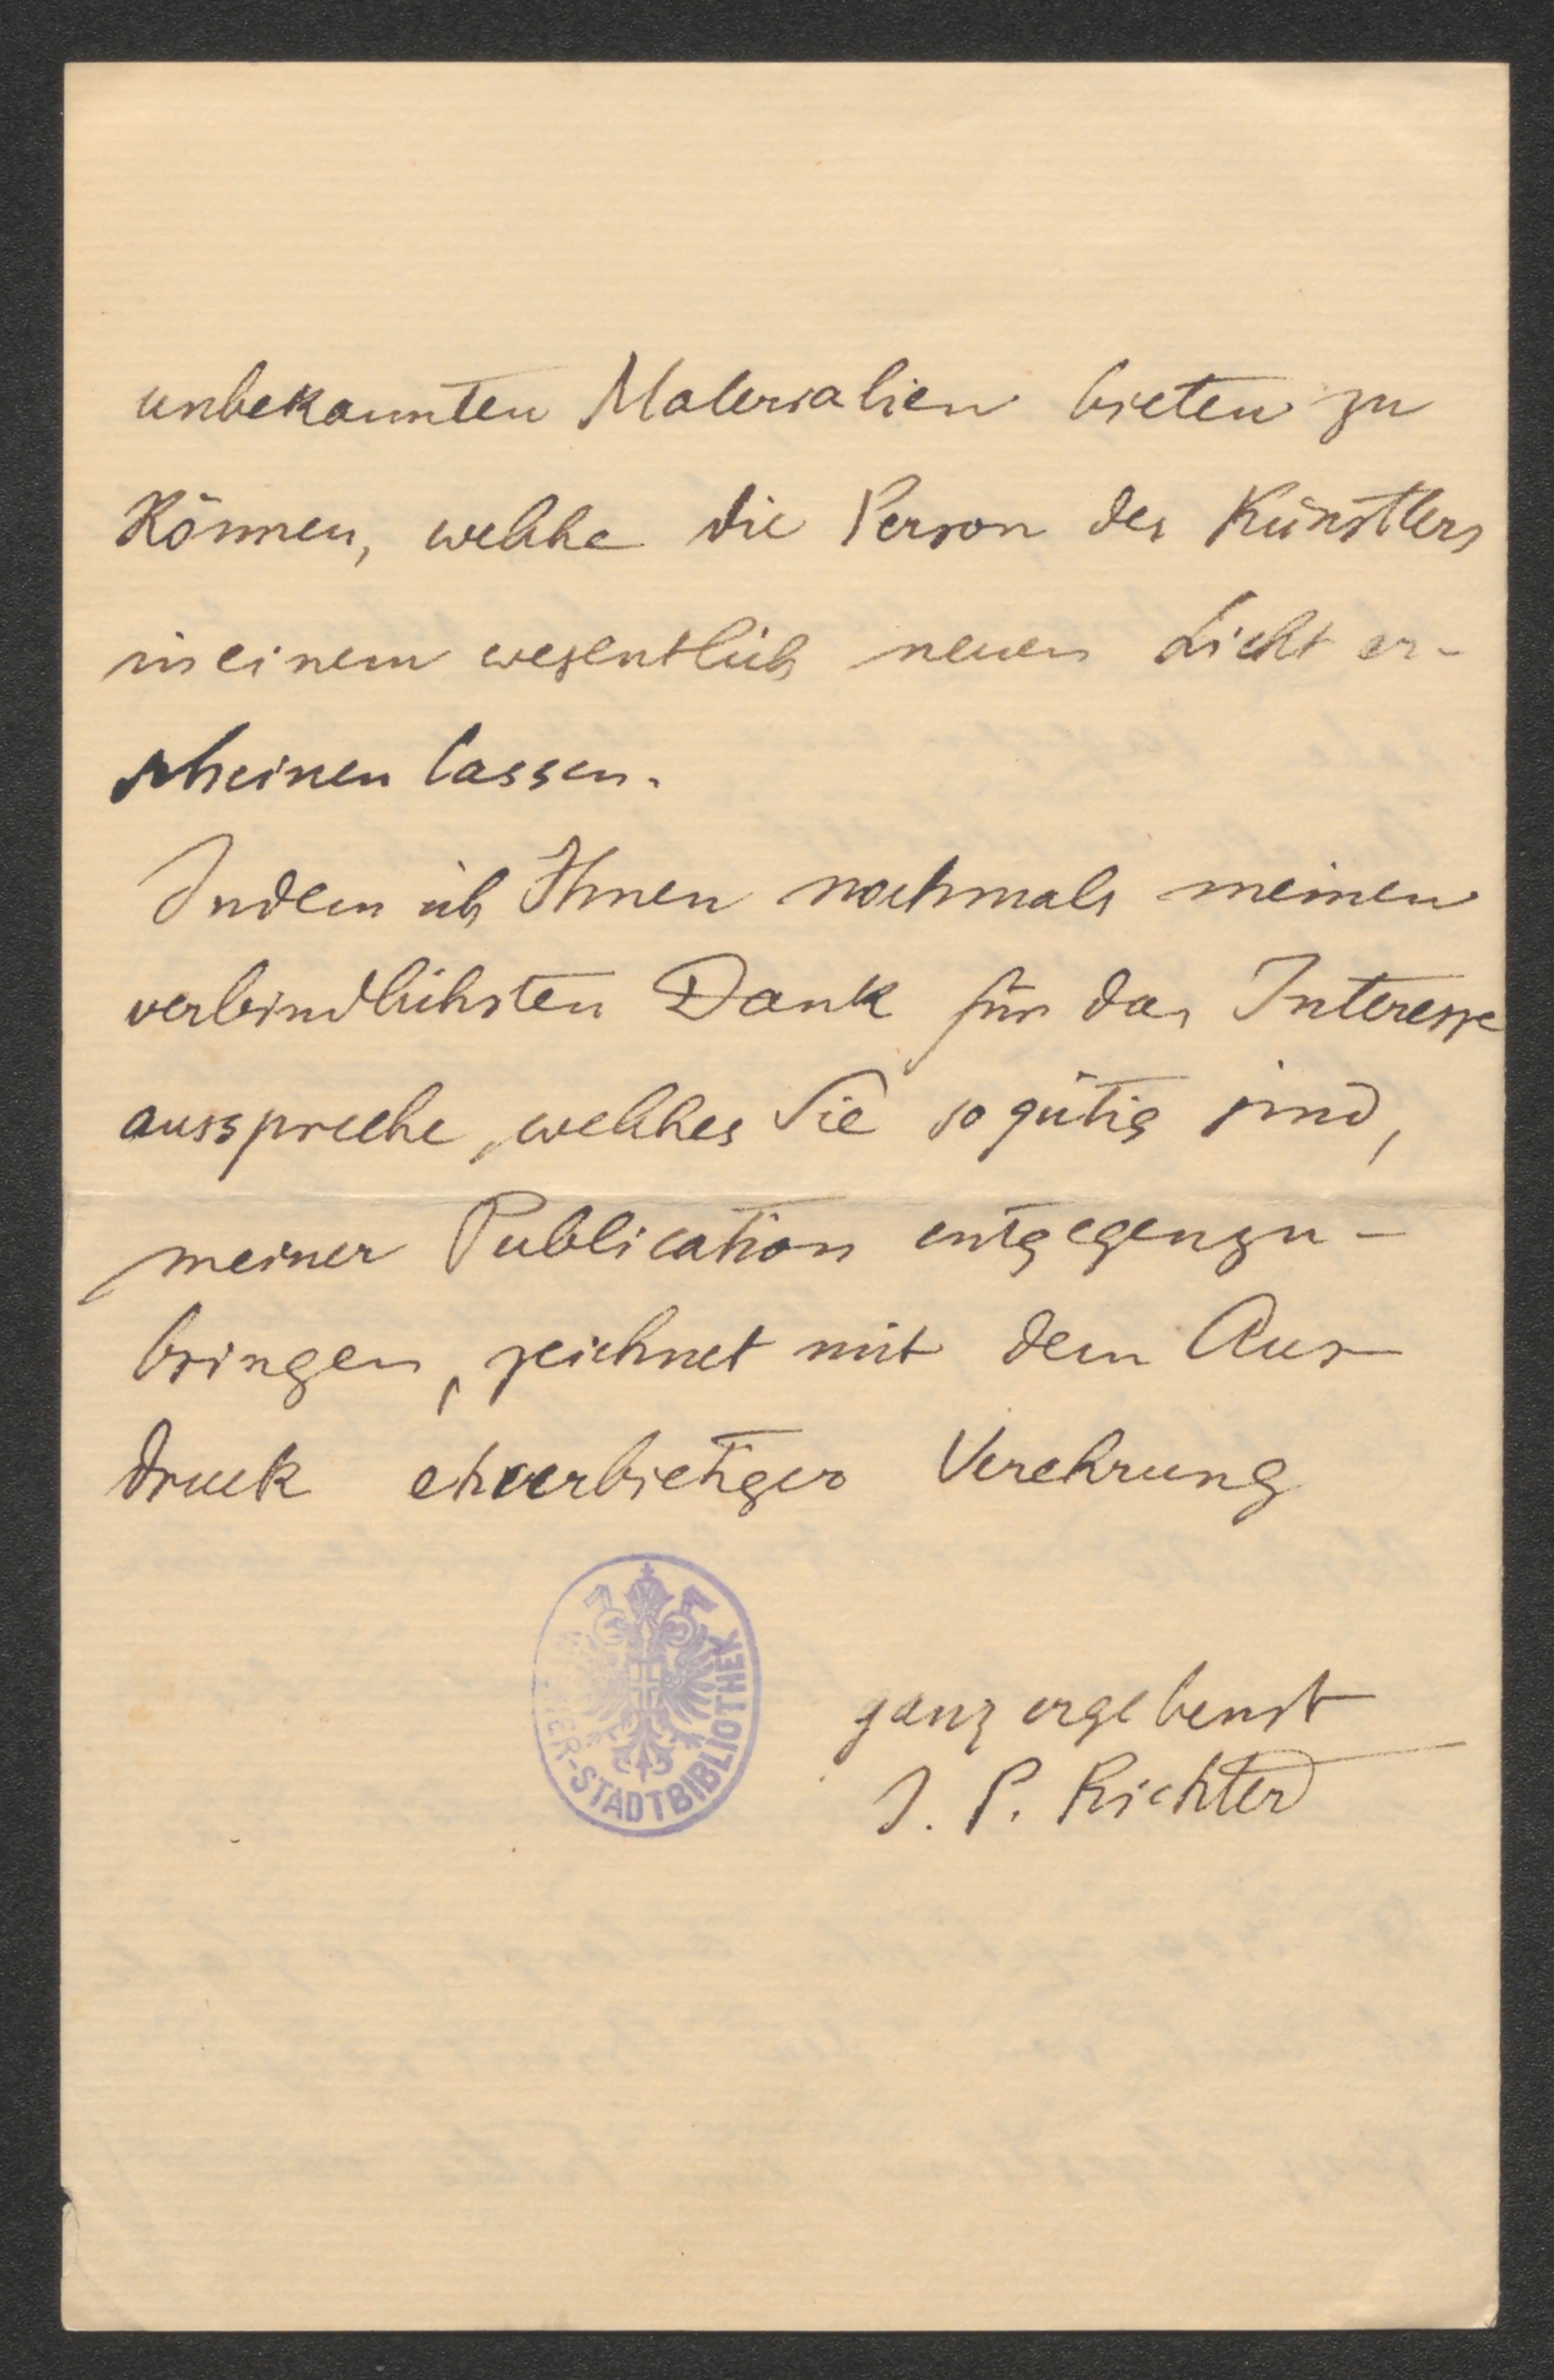 unbekannten Materialien bieten zu
können, welche die Person des Künstlers
in einem wesentlich neuen Licht er-
scheinen lassen.
Indem ich Ihnen nochmals meinen
verbindlichsten Dank für das Interesse
ausspreche, welches Sie so gütig sind,
meiner Publication entgegenzu-
bringen, zeichnet mit dem Aus-
druck ehrerbietiger Verehrung
ganz ergebenst
J. P. Richter
-STADTBIBLIOTHEK